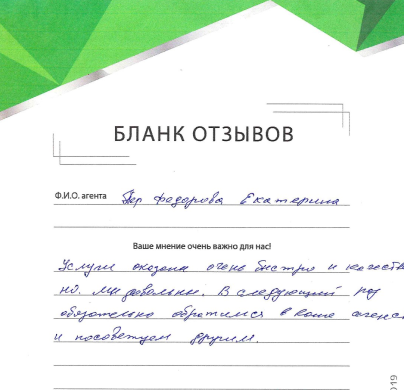 БЛАНК ОТЗЫВОВ
Ф.И.О. агента Федорова Екатерина
Ваше мнение очень важно для нас!
Услуги оказаны очень быстро и качестве
но. Мы довольны. В следующий раз
обязательно обратимся в ваше агенст
и посоветуем другим.
019